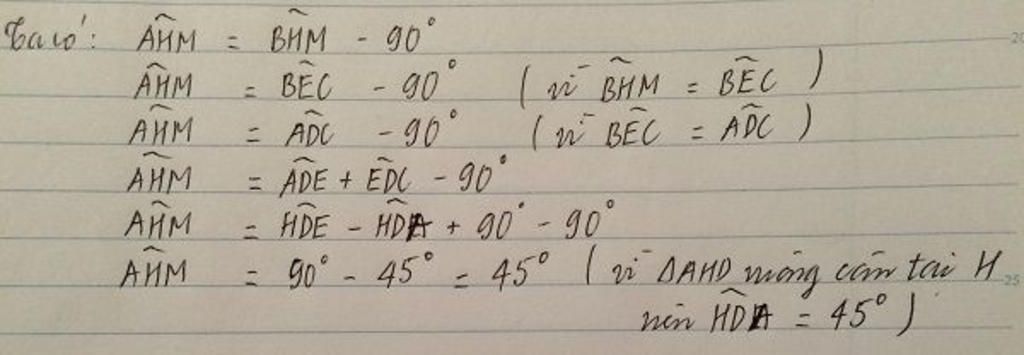 Ta có: AHM^ = BHM^ - 90°
AHM^ = BEC^ - 90° (vì BHM^ = BEC^)
AHM^ = ADC^ - 90° (vì BEC^ = ADC^)
AHM^ = ADE^ + EDC^ - 90°
AHM^ = HDE^ - HDA^ + 90° - 90°
AHM^ = 90° - 45° = 45° (vì ΔAHD vuông cân tại H
nên HDA^ = 45°)